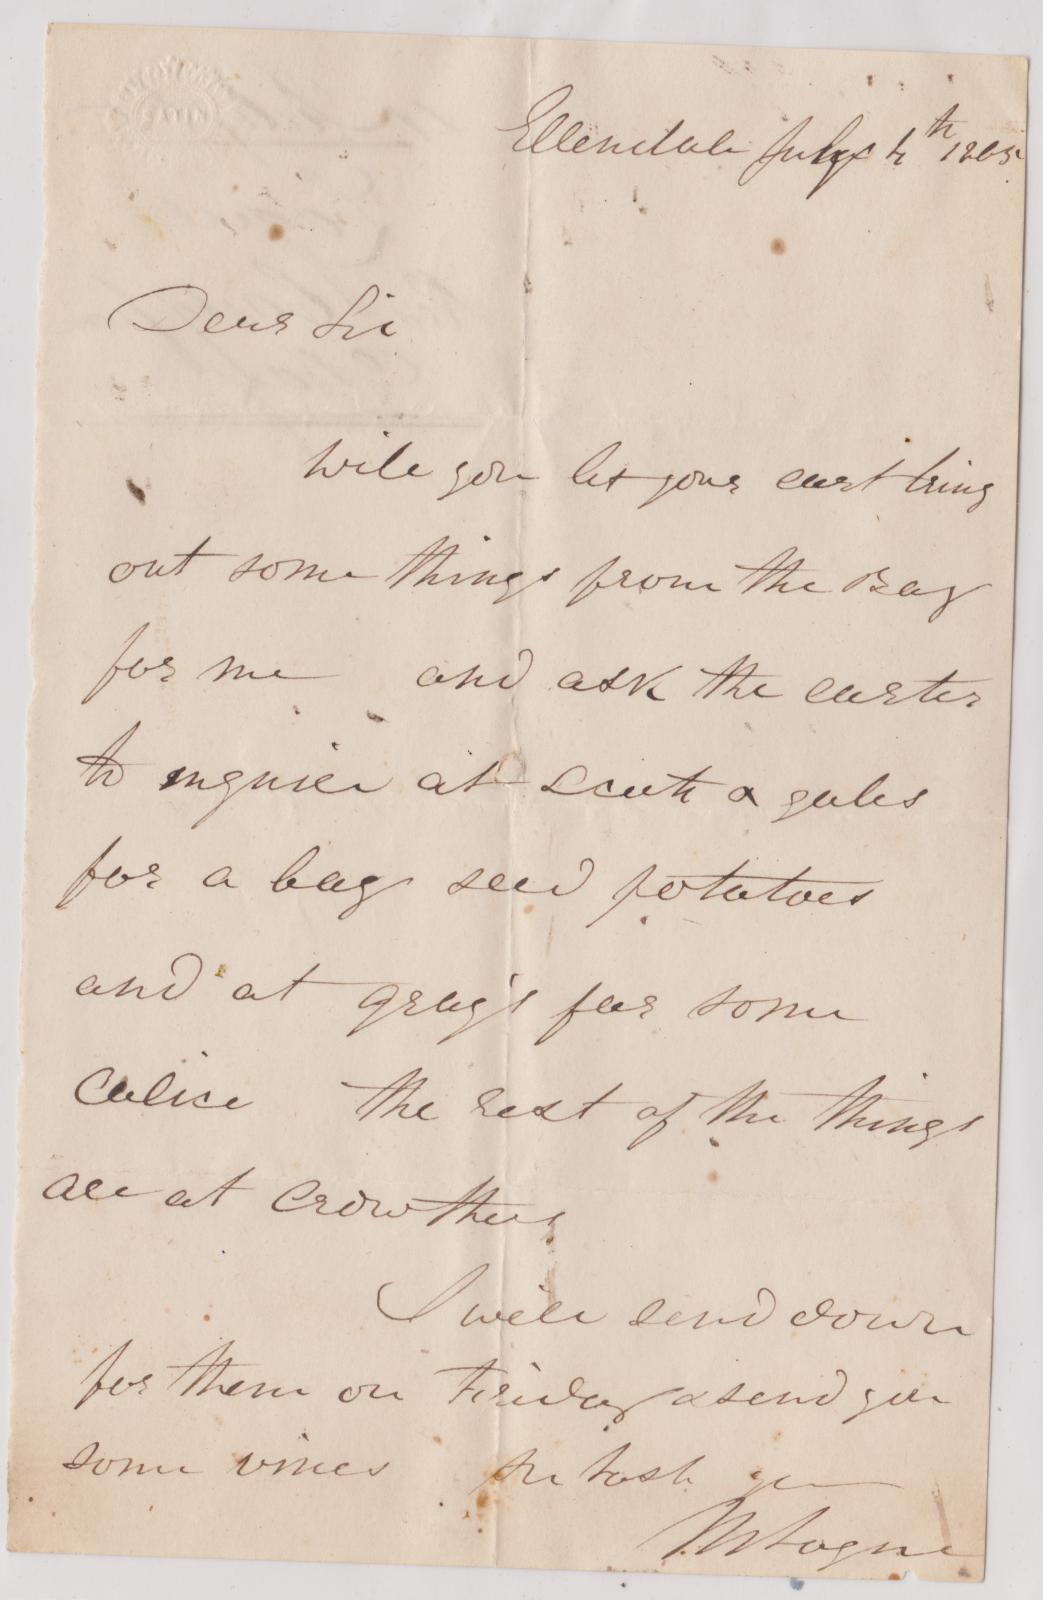 SATIN
Ellendale July 4th 1865
Dear Sir
Will you let your cart bring
out some things from the Bay
for me and ask the carter
to inquire at Scott & Gales
for a bag seed potatoes
and at Gray's for some
Calico the rest of the things
are at Crowthers
I will send down
for them on Friday & send you
some vines In haste yr